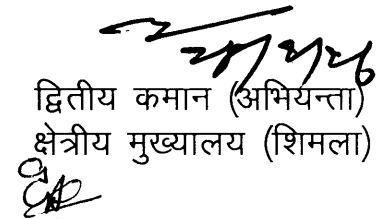 द्वितीय कमान (अभियन्ता)
क्षेत्रीय मुख्यालय (शिमला)